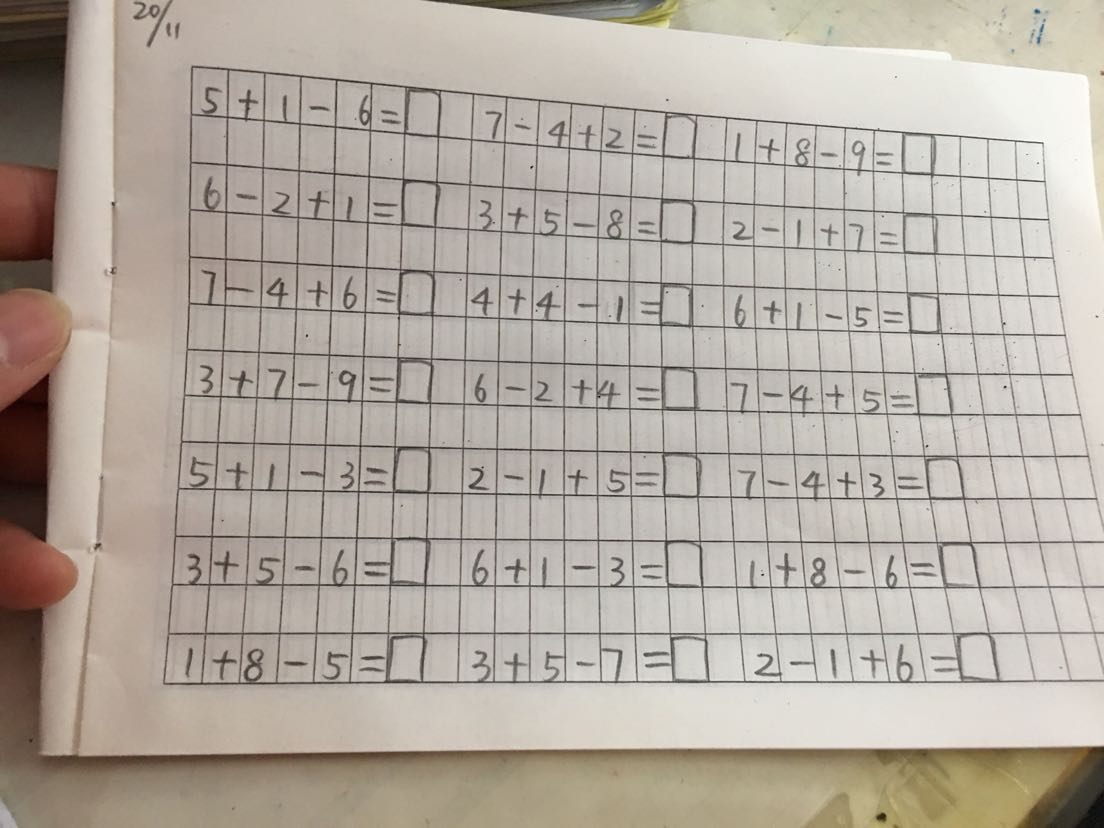 20/11
5+1-6=□ 7-4+2=□ 1+8-9=□
6-2+1=□ 3+5-8=□ 2-1+7=□
7-4+6=□ 4+4-1=□ 6+1-5=□
3+7-9=□ 6-2+4=□ 7-4+5=□
5+1-3=□ 2-1+5=□ 7-4+3=□
3+5-6=□ 6+1-3=□ 1+8-6=□
1+8-5=□ 3+5-7=□ 2-1+6=□